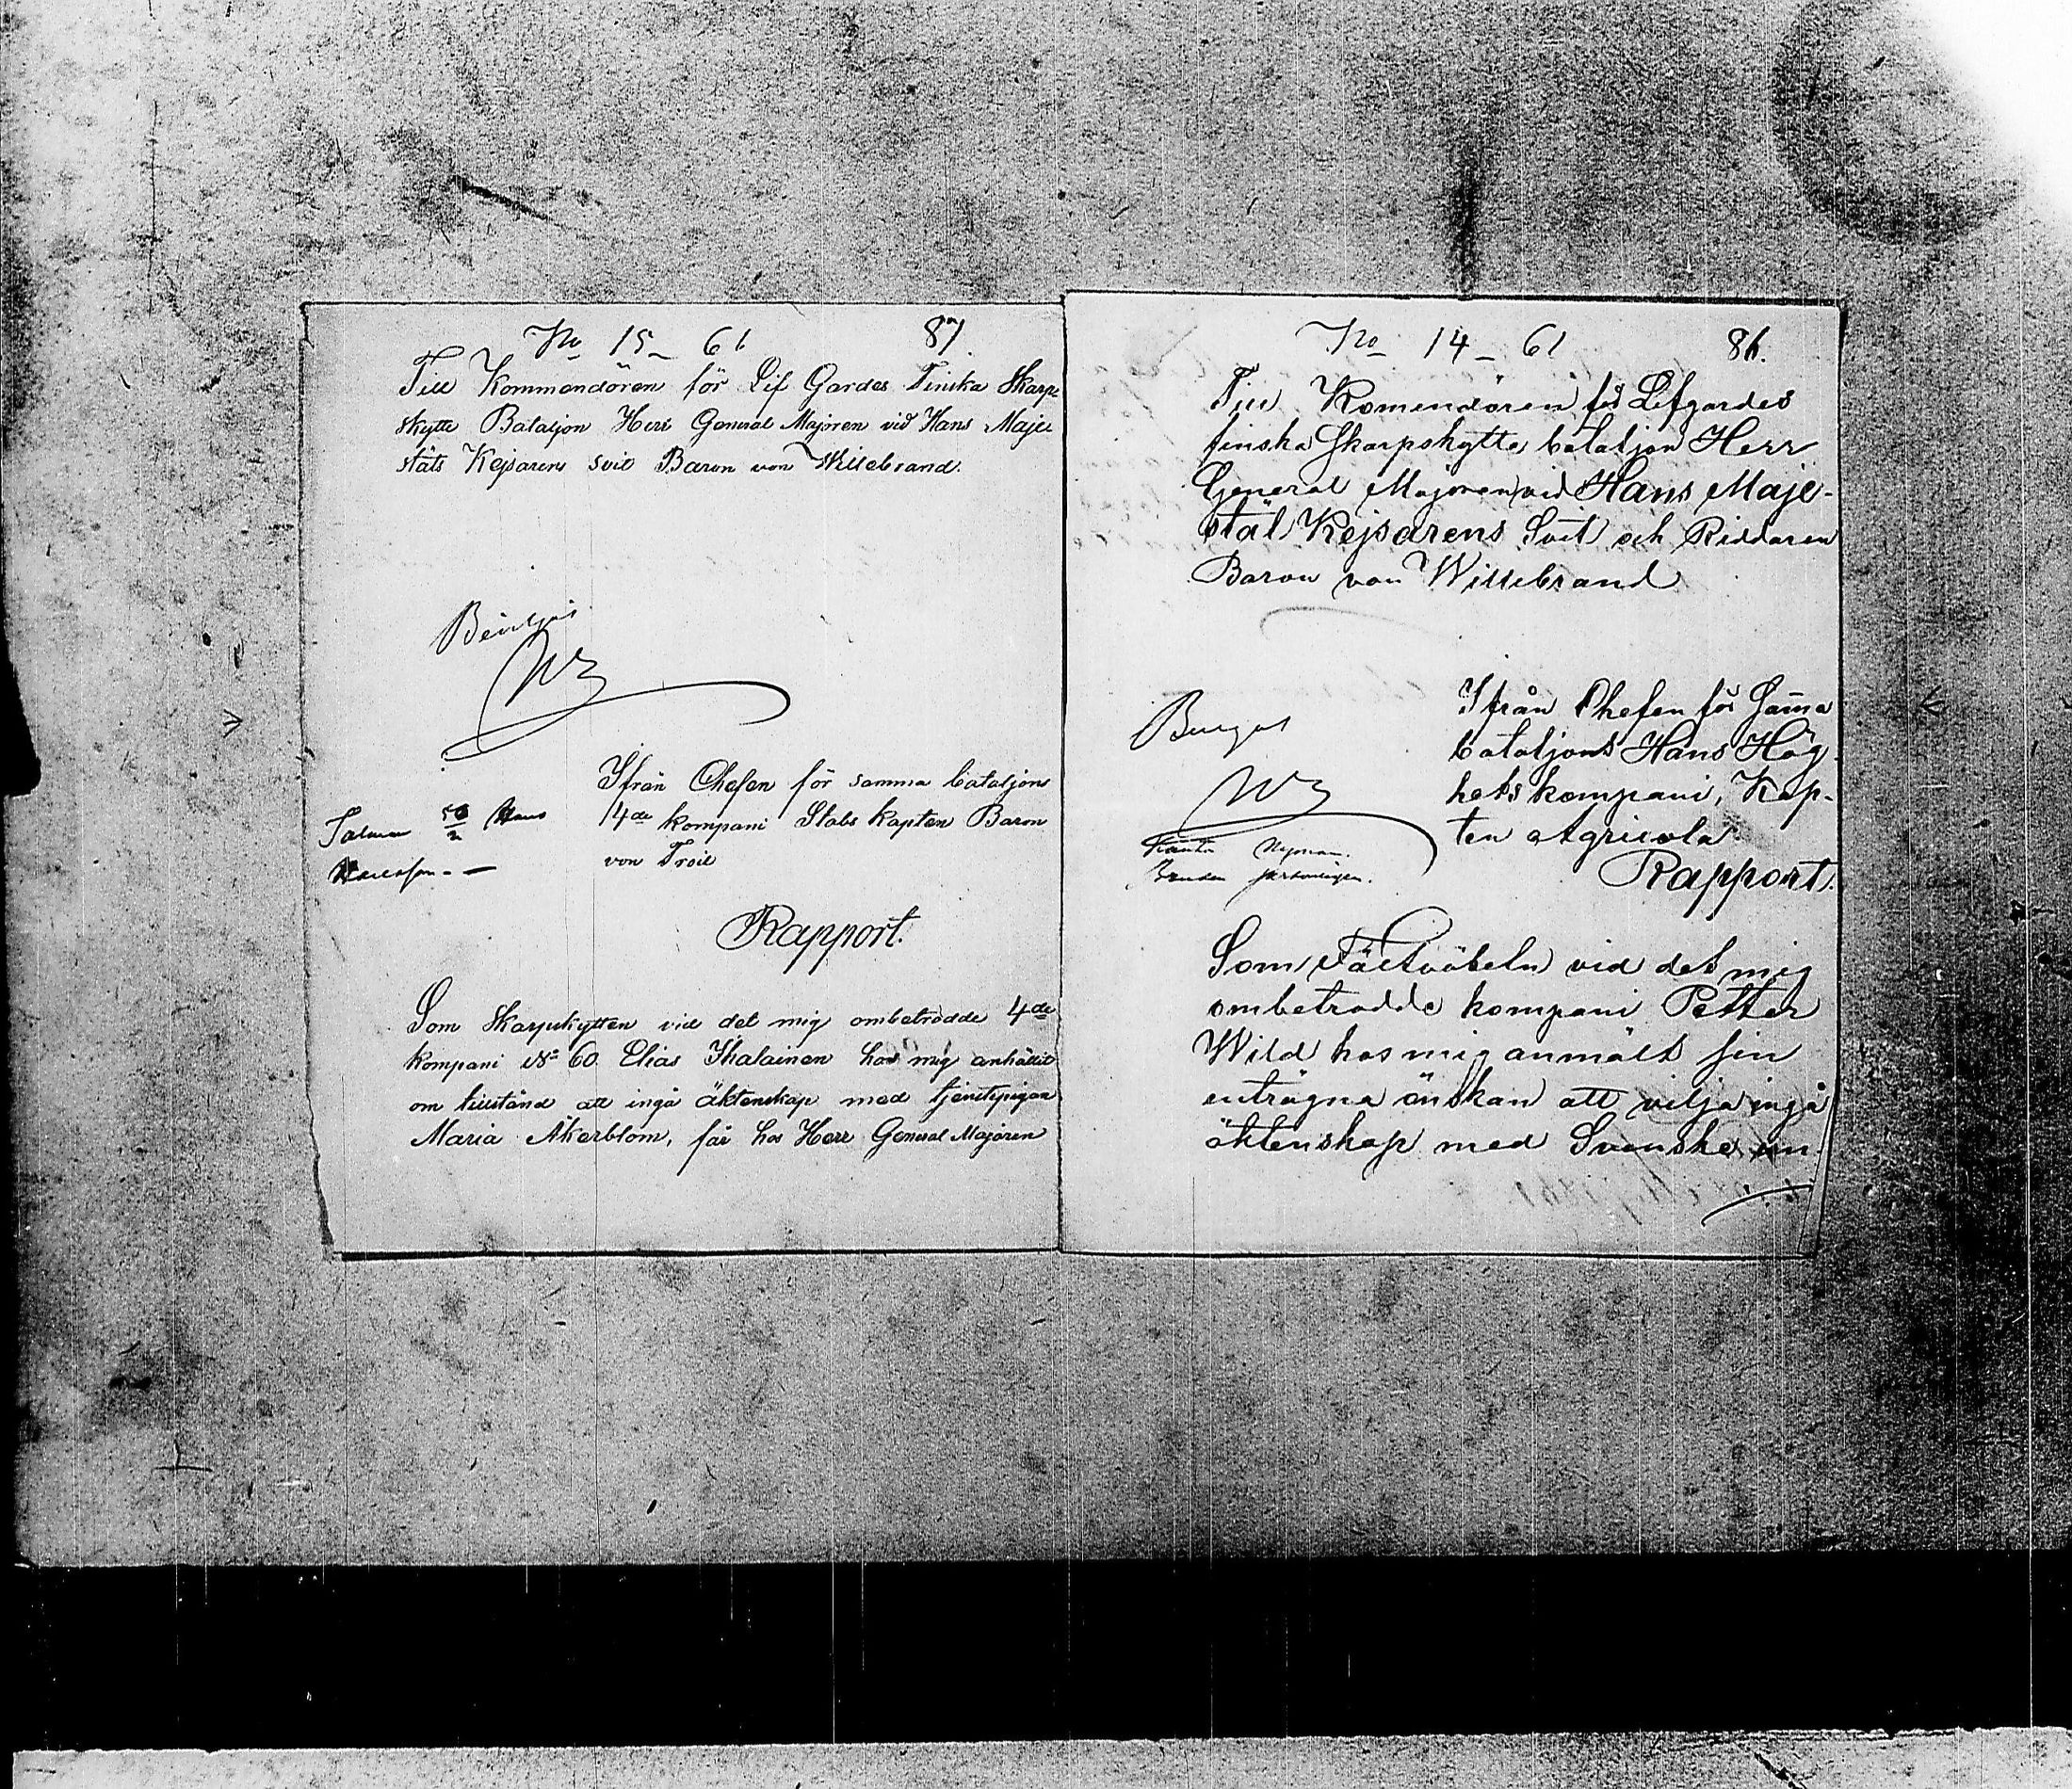 No 15 - 61 87.
Till Kommendören för Lif Gardes Finska Skarp-
skytte Bataljon Herr General Majoren vid Hans Maje-
stäts Kejsarens svit Baron von Willebrand.
Beviljas
Ifrån Chefen för samma bataljons
4de kompani Stabs Kapten Baron
von Troil
Rapport.
Som Skarpskytten vid det mig ombetrodde 4de
kompani No 60. Elias Ihalainen hos mig anhållit
om tillstånd att ingå äktenskap med tjenstepigan
Maria Åkerblom, får hos Herr General Majoren
No 14 - 61 86.
Till Komendören för Lifgardes
finska Skarpskytte bataljon Herr
General Majoren vid Hans Maje-
stät Kejsarens Svit och Riddaren
Baron von Willebrand
Ifrån Chefen för Samma
bataljons Hans Hög-
hets kompani, Kap-
ten Agricola.
Nyman.
Rapport.
Som Fältväbeln vid det mig
ombetrodde kompani Petter
Wild hos mig anmält sin
enträgna önskan att vilja ingå
äktenskap med Svenske un-